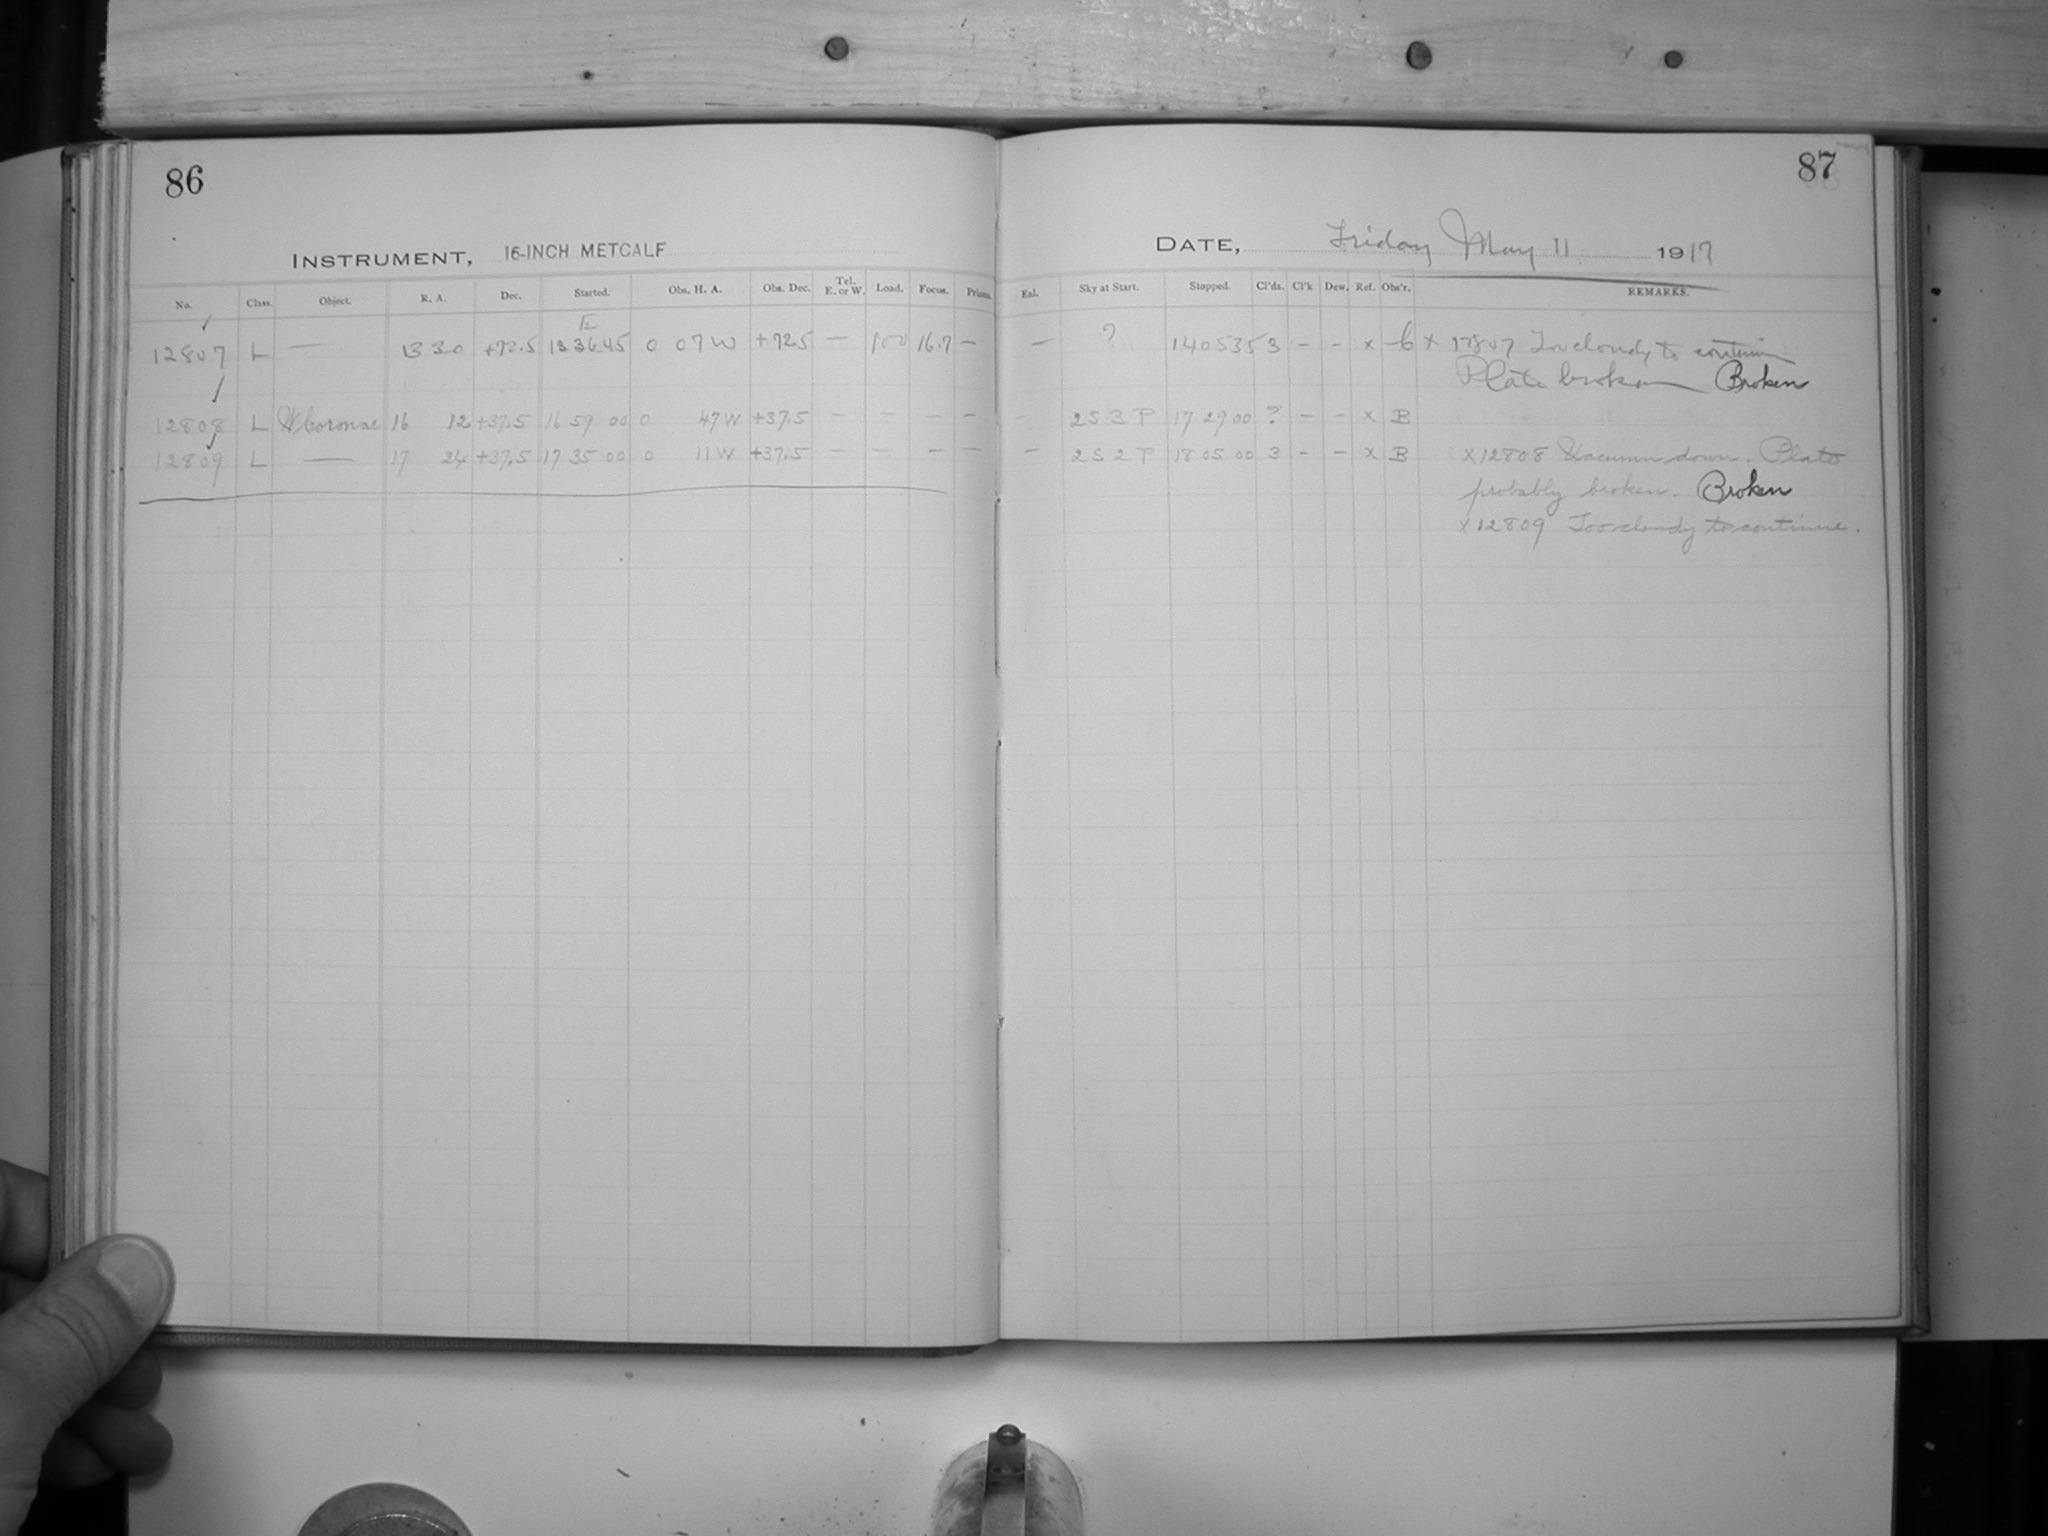 86
INSTRUMENT, 16-INCH METCALF
No. Class. Object. R. A. Dec. Started. Obs. H. A. Obs. Dec. Tel. E. or W. Load. Focus. Prism.
12807 L — 13 30 +72.5 13 36 45 0 07 W +72.5 — 100 16.7 —
12808 L W Coronae 16 12 +37.5 16 59 00 0 47 W +37.5 — — — —
12809 L — 17 24 +37.5 17 35 00 0 11 W +37.5 — — — —
87
DATE, Friday May 11 1917
Enl. Sky at Start. Stopped. Cl'ds. Cl'k Dew. Ref. Obs'r. REMARKS.
— ? 14 05 35 3 – – x x 12807 Too cloudy to continue
Plate broken Broken
– 2 S 3 P 17 29 00 ? – – x B
– 2 S 2 P 18 05 00 3 – – x B x 12808 Vacuum down. Plate
probably broken. Broken
x 12809 Too cloudy to continue.